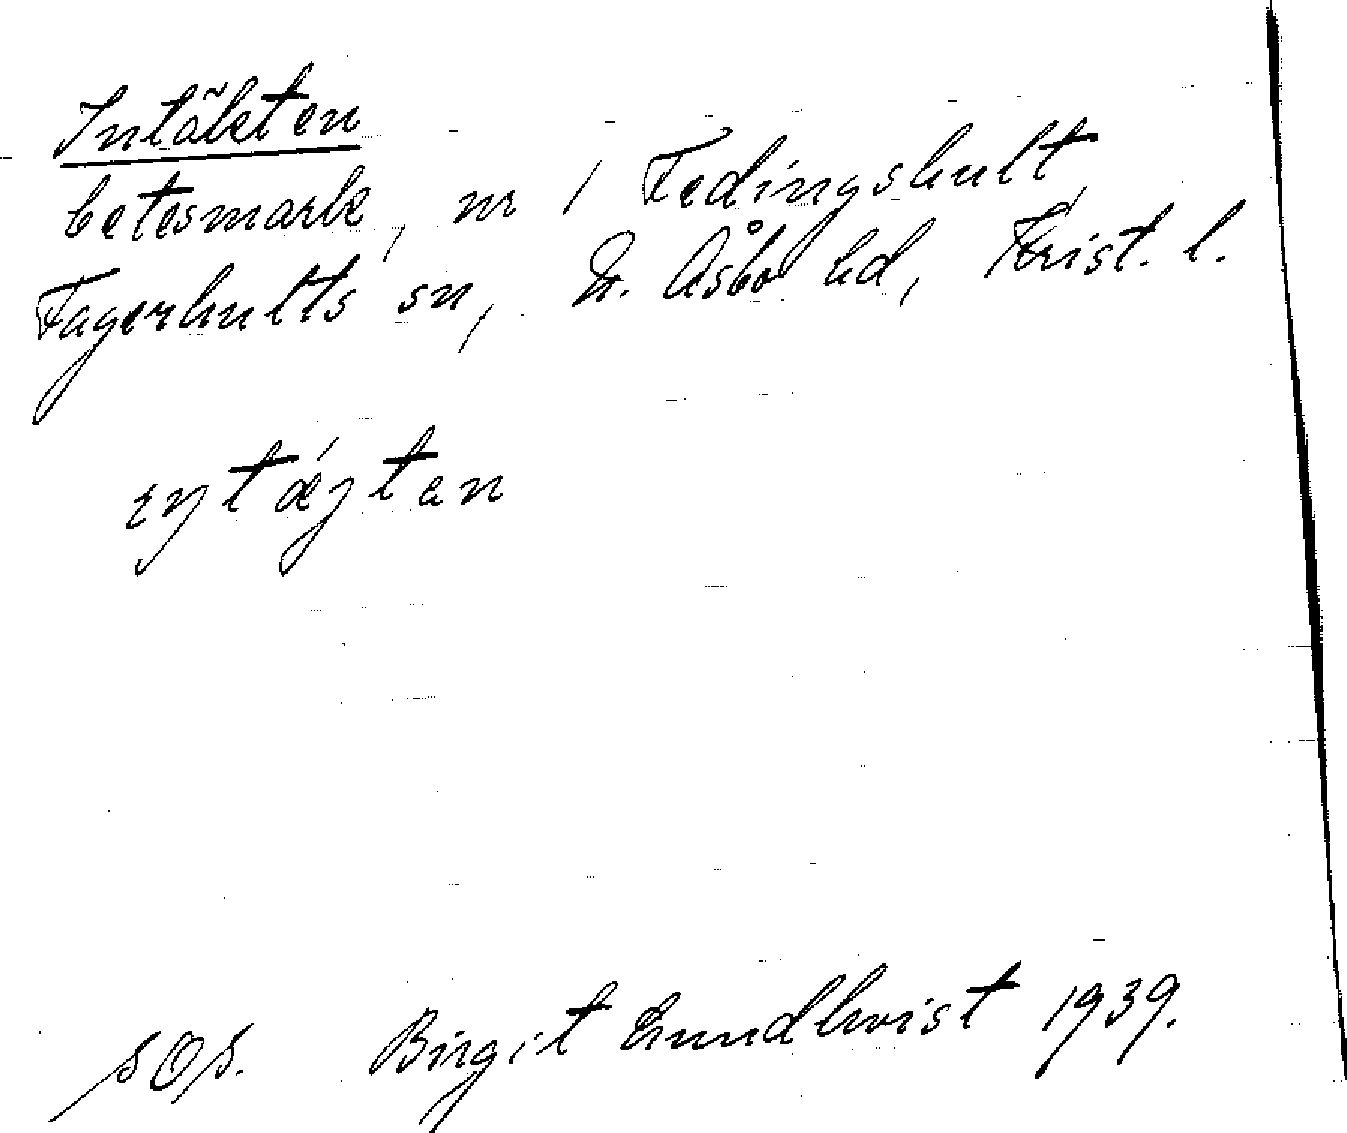 Intäkten
betesmark, nr 1 Fedingshult,
Fagerhults sn, N. Åsbo hd, Krist. l.
sOs. Birgit Lundkvist 1939.